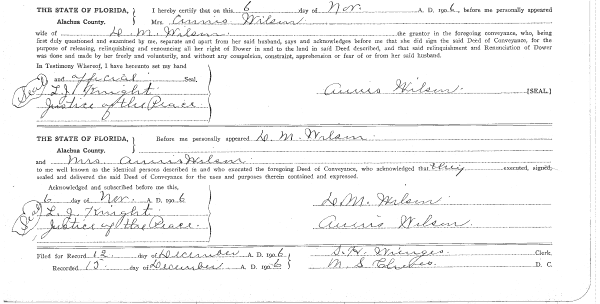 THE STATE OF FLORIDA, I hereby certify that on this 6 day of Nov. A. D. 1906, before me personally appeared
Alachua County. Mrs. Annis Wilson
wife of D. M. Wilson. the grantor in the foregoing conveyance, who, being
first duly questioned and examined by me, separate and apart from her said husband, says and acknowledges before me that she did sign the said Deed of Conveyance, for the
purpose of releasing, relinquishing and renouncing all her right of Dower in and to the land in said Deed described, and that said relinquishment and Renunciation of Dower
was done and made by her freely and voluntarily, and without any compulsion, constraint, apprehension or fear of or from her said husband.
In Testimony Whereof, I have hereunto set my hand
and official Seal.
(Seal) L. J. Knight Annis Wilson. [SEAL.]
Justice of the Peace
THE STATE OF FLORIDA, Before me personally appeared D. M. Wilson
Alachua County.
and Mrs. Annis Wilson
to me well known as the identical persons described in and who executed the foregoing Deed of Conveyance, who acknowledged that they executed, signed,
sealed and delivered the Deed of Conveyance for the uses and purposes therein contained and expressed.
Acknowledged and subscribed before me this,
6 day of Nov. A. D. 1906 D. M. Wilson
(Seal) L. J. Knight Annis Wilson
Justice of the Peace
Filed for Record 12 day of December A. D. 1906 S. H. Wienges Clerk.
Recorded 15 day of December A. D. 1906 M. S. D. C.